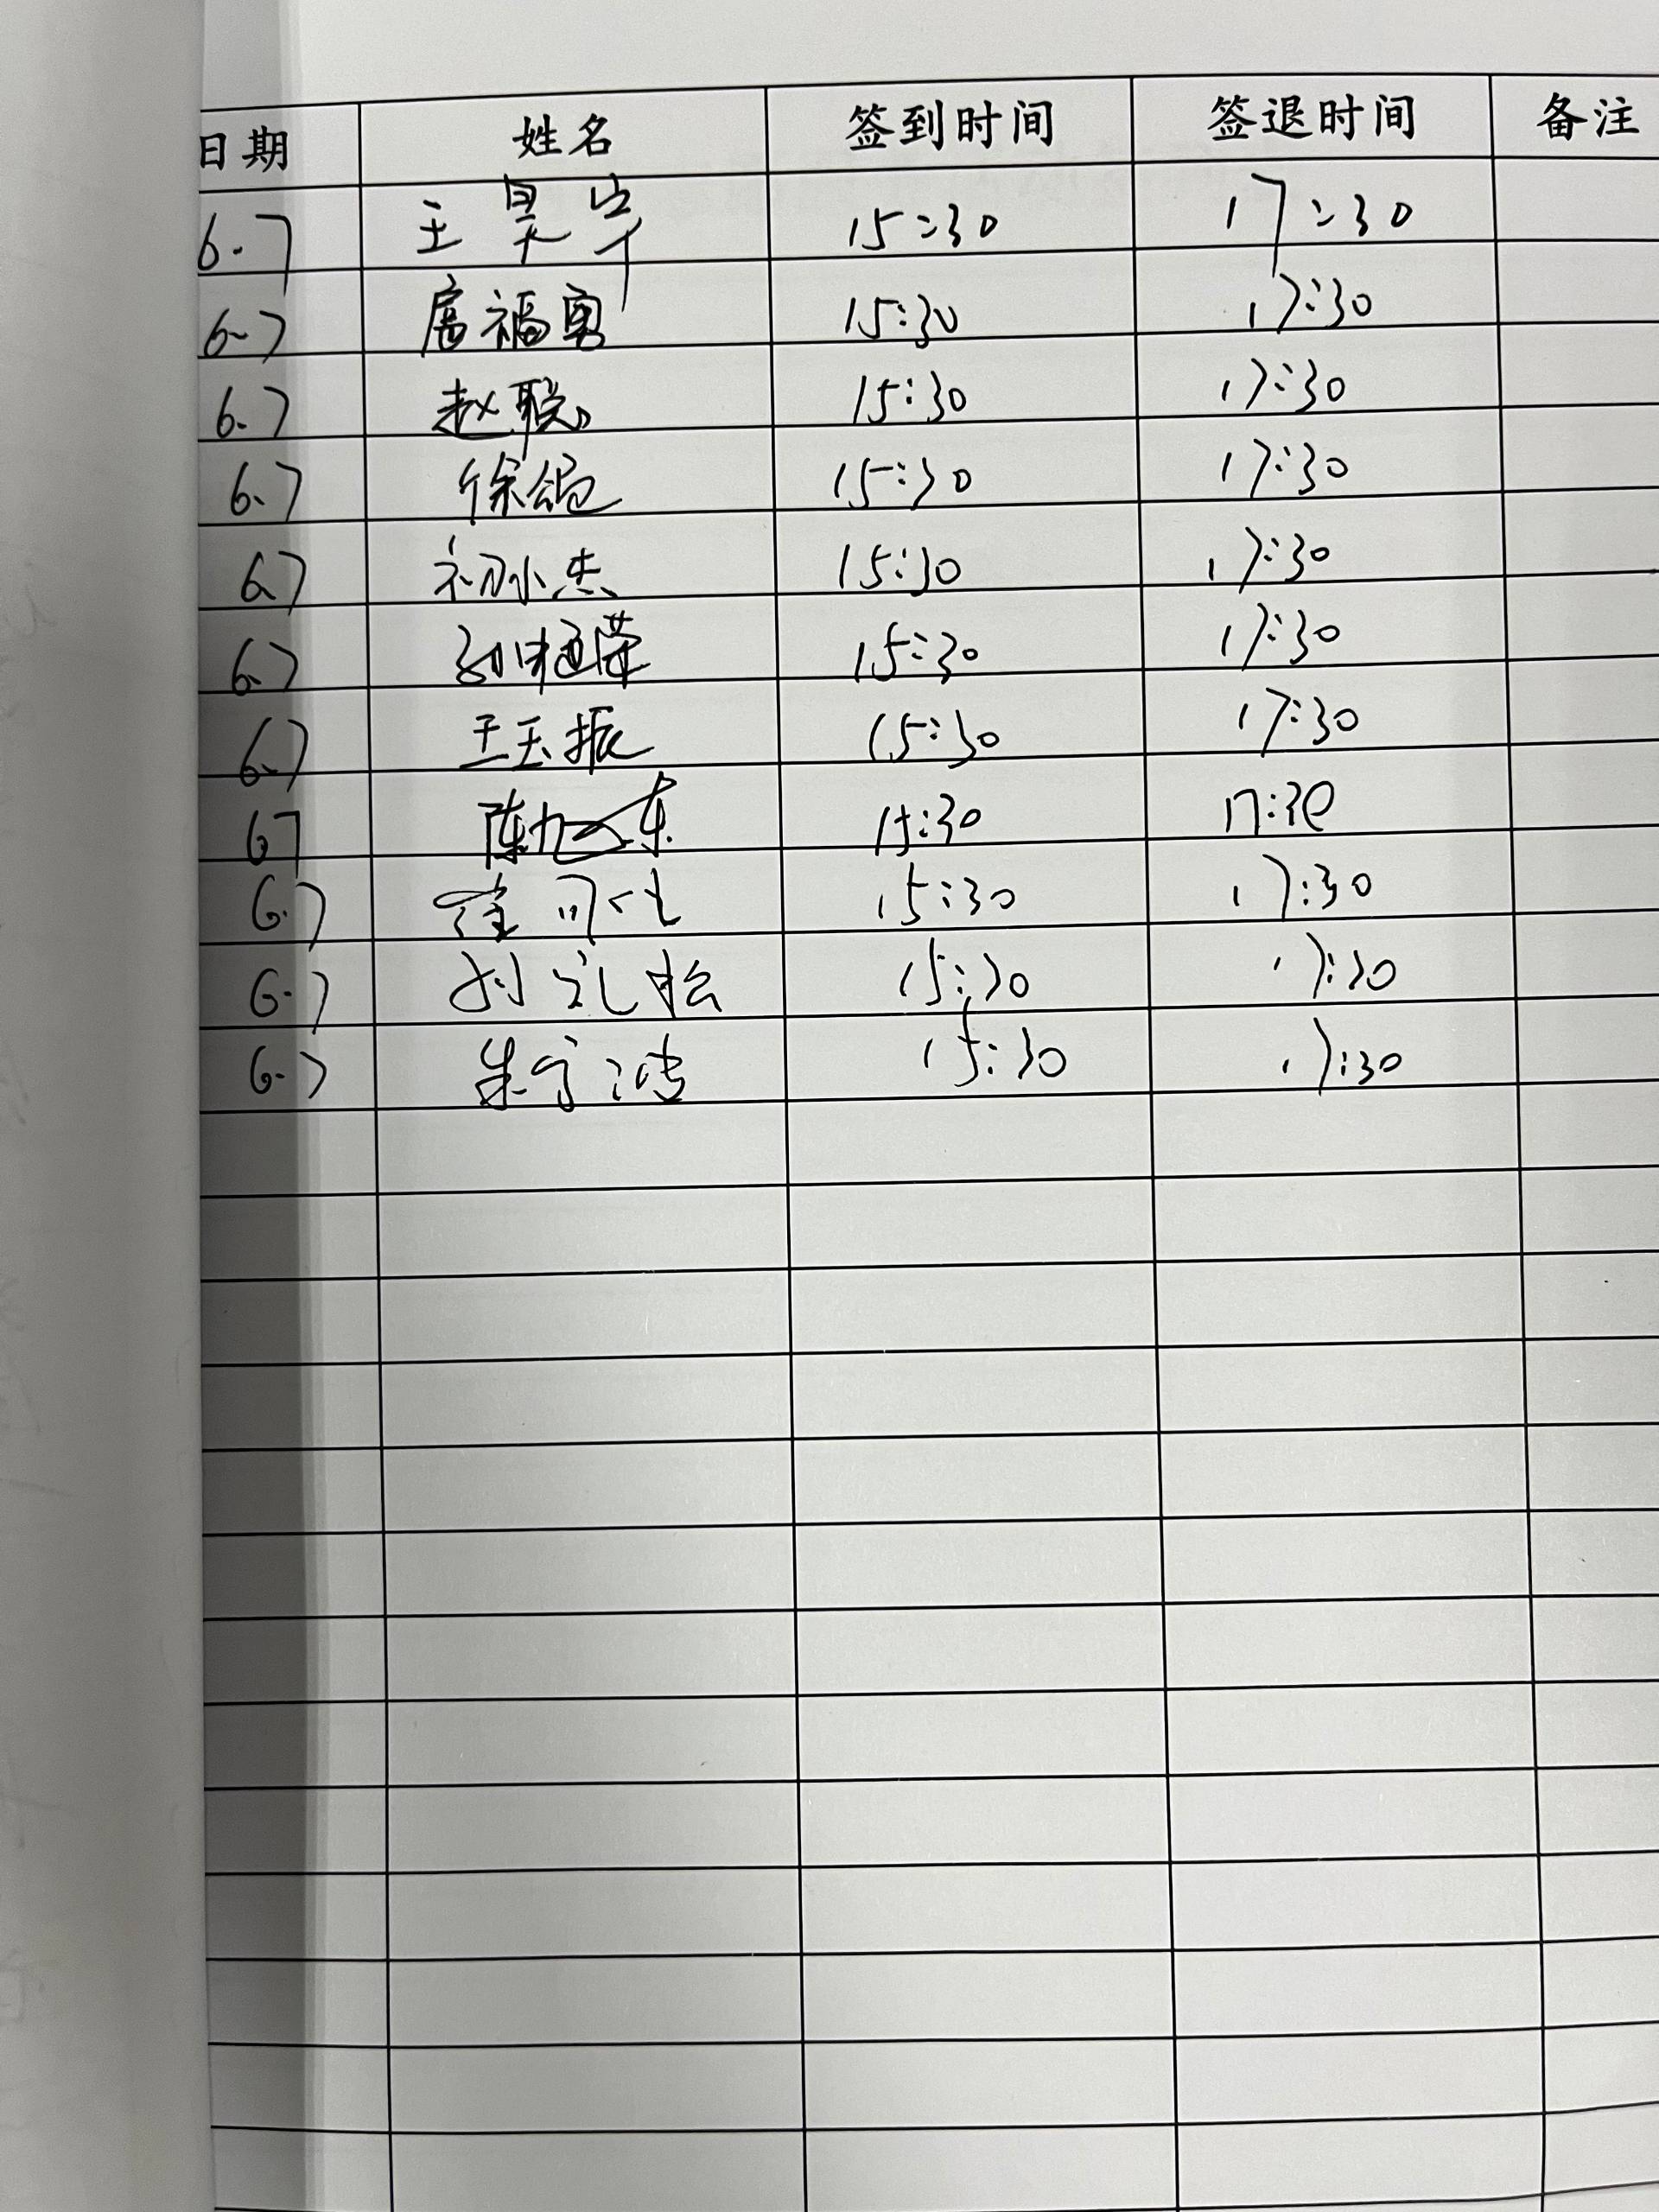 日期 姓名 签到时间 签退时间 备注
6.7 王昊宇 15:30 17:30
6.7 福勇 15:30 17:30
6.7 赵聪 15:30 17:30
6.7 徐 15:30 17:30
6.7 初小杰 15:30 17:30
6.7 15:30 17:30
6.7 王玉振 15:30 17:30
67 陈旭东 15:30 17:30
6.7 15:30 17:30
6.7 刘礼松 15:30 17:30
6.7 朱宁波 15:30 17:30